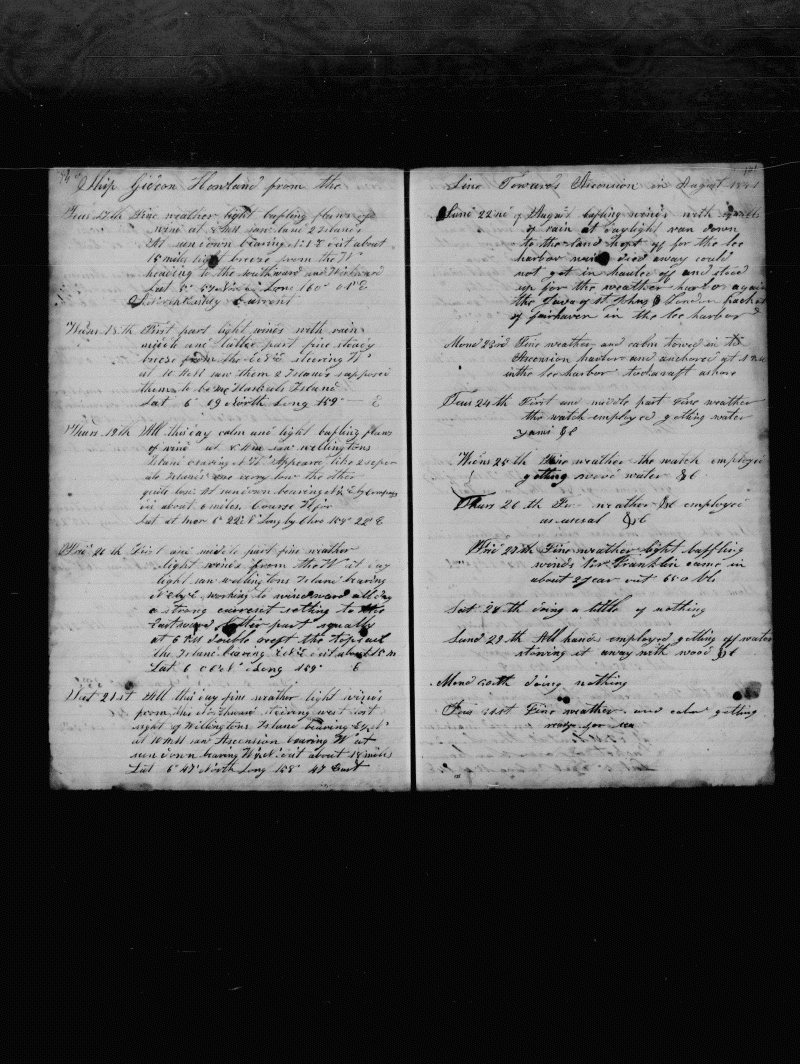 Ship Gideon Howland from the
Tues 17th Fine weather light bafling flaws of
wind at 8 AM saw land 2 Islands
At sundown bearing N 1 E dist about
15 miles light breeze from the W
heading to the southward and Westward
Lat 5° 54 North Long 160° 0 E
Current
Wens 18th First part light winds with rain
middle and latter part fine steady
breeze from the steering W
at 10 AM saw them 2 Islands supposed
them to be Island
Lat 6° 09 North Long 159° E
Thurs 19th All this day calm and light bafling flaws
of wind at saw wellingtons
Island bearing N W Appeared like 2 seper
ate Islands one very low the other
quite low. At sundown bearing by compass
dist about 6 miles Course
Lat at Mer 6° 22 N Long by Chro 159° 22 E
Frid 20th First and middle part fine weather
light winds from the W at day
light saw wellingtons Island bearing
working to windward all day
a strong current setting to the
Eastward latter part squally
at 6 AM double reeft the topsails
The Island bearing dist about 15 m
Lat 6 06 N Long 159° E
Sat 21st All this day fine weather light winds
from the steering west lost
sight of Wellingtons Island bearing
at 10 AM saw Ascension bearing W at
sun down bearing dist about 18 miles
Lat 6° 47 North Long 158° 47 East
Line Towards Ascension in August
Sund 22nd of August bafling winds with squalls
of rain at daylight ran down
to the land kept off for the lee
harbor wind died away could
not get in hauled off and stood
up for the weather harbor again
the of St Johns & London Packet
of fairhaven in the lee harbor
Mond 23rd Fine weather and calm towed in to
Ascension harbor and anchored at
in the lee harbor took a raft ashore
Tues 24th First and middle part Fine weather
the watch employed getting water
yams &c
Wens 25th Fine weather the watch employed
getting wood water &c
Thurs 26th weather employed
as useual &c
Frid 27th Fine weather light baffling
winds Franklin came in
about year out 650 bbls
Sat 28th doing a little of nothing
Sund 29th All hands employed getting off water
stowing it away with wood &c
Mond 30th doing nothing
Tues 31st Fine weather and calm getting
ready for sea